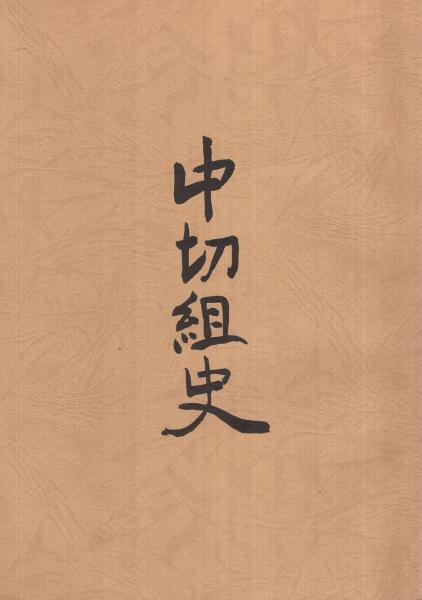 中切組史